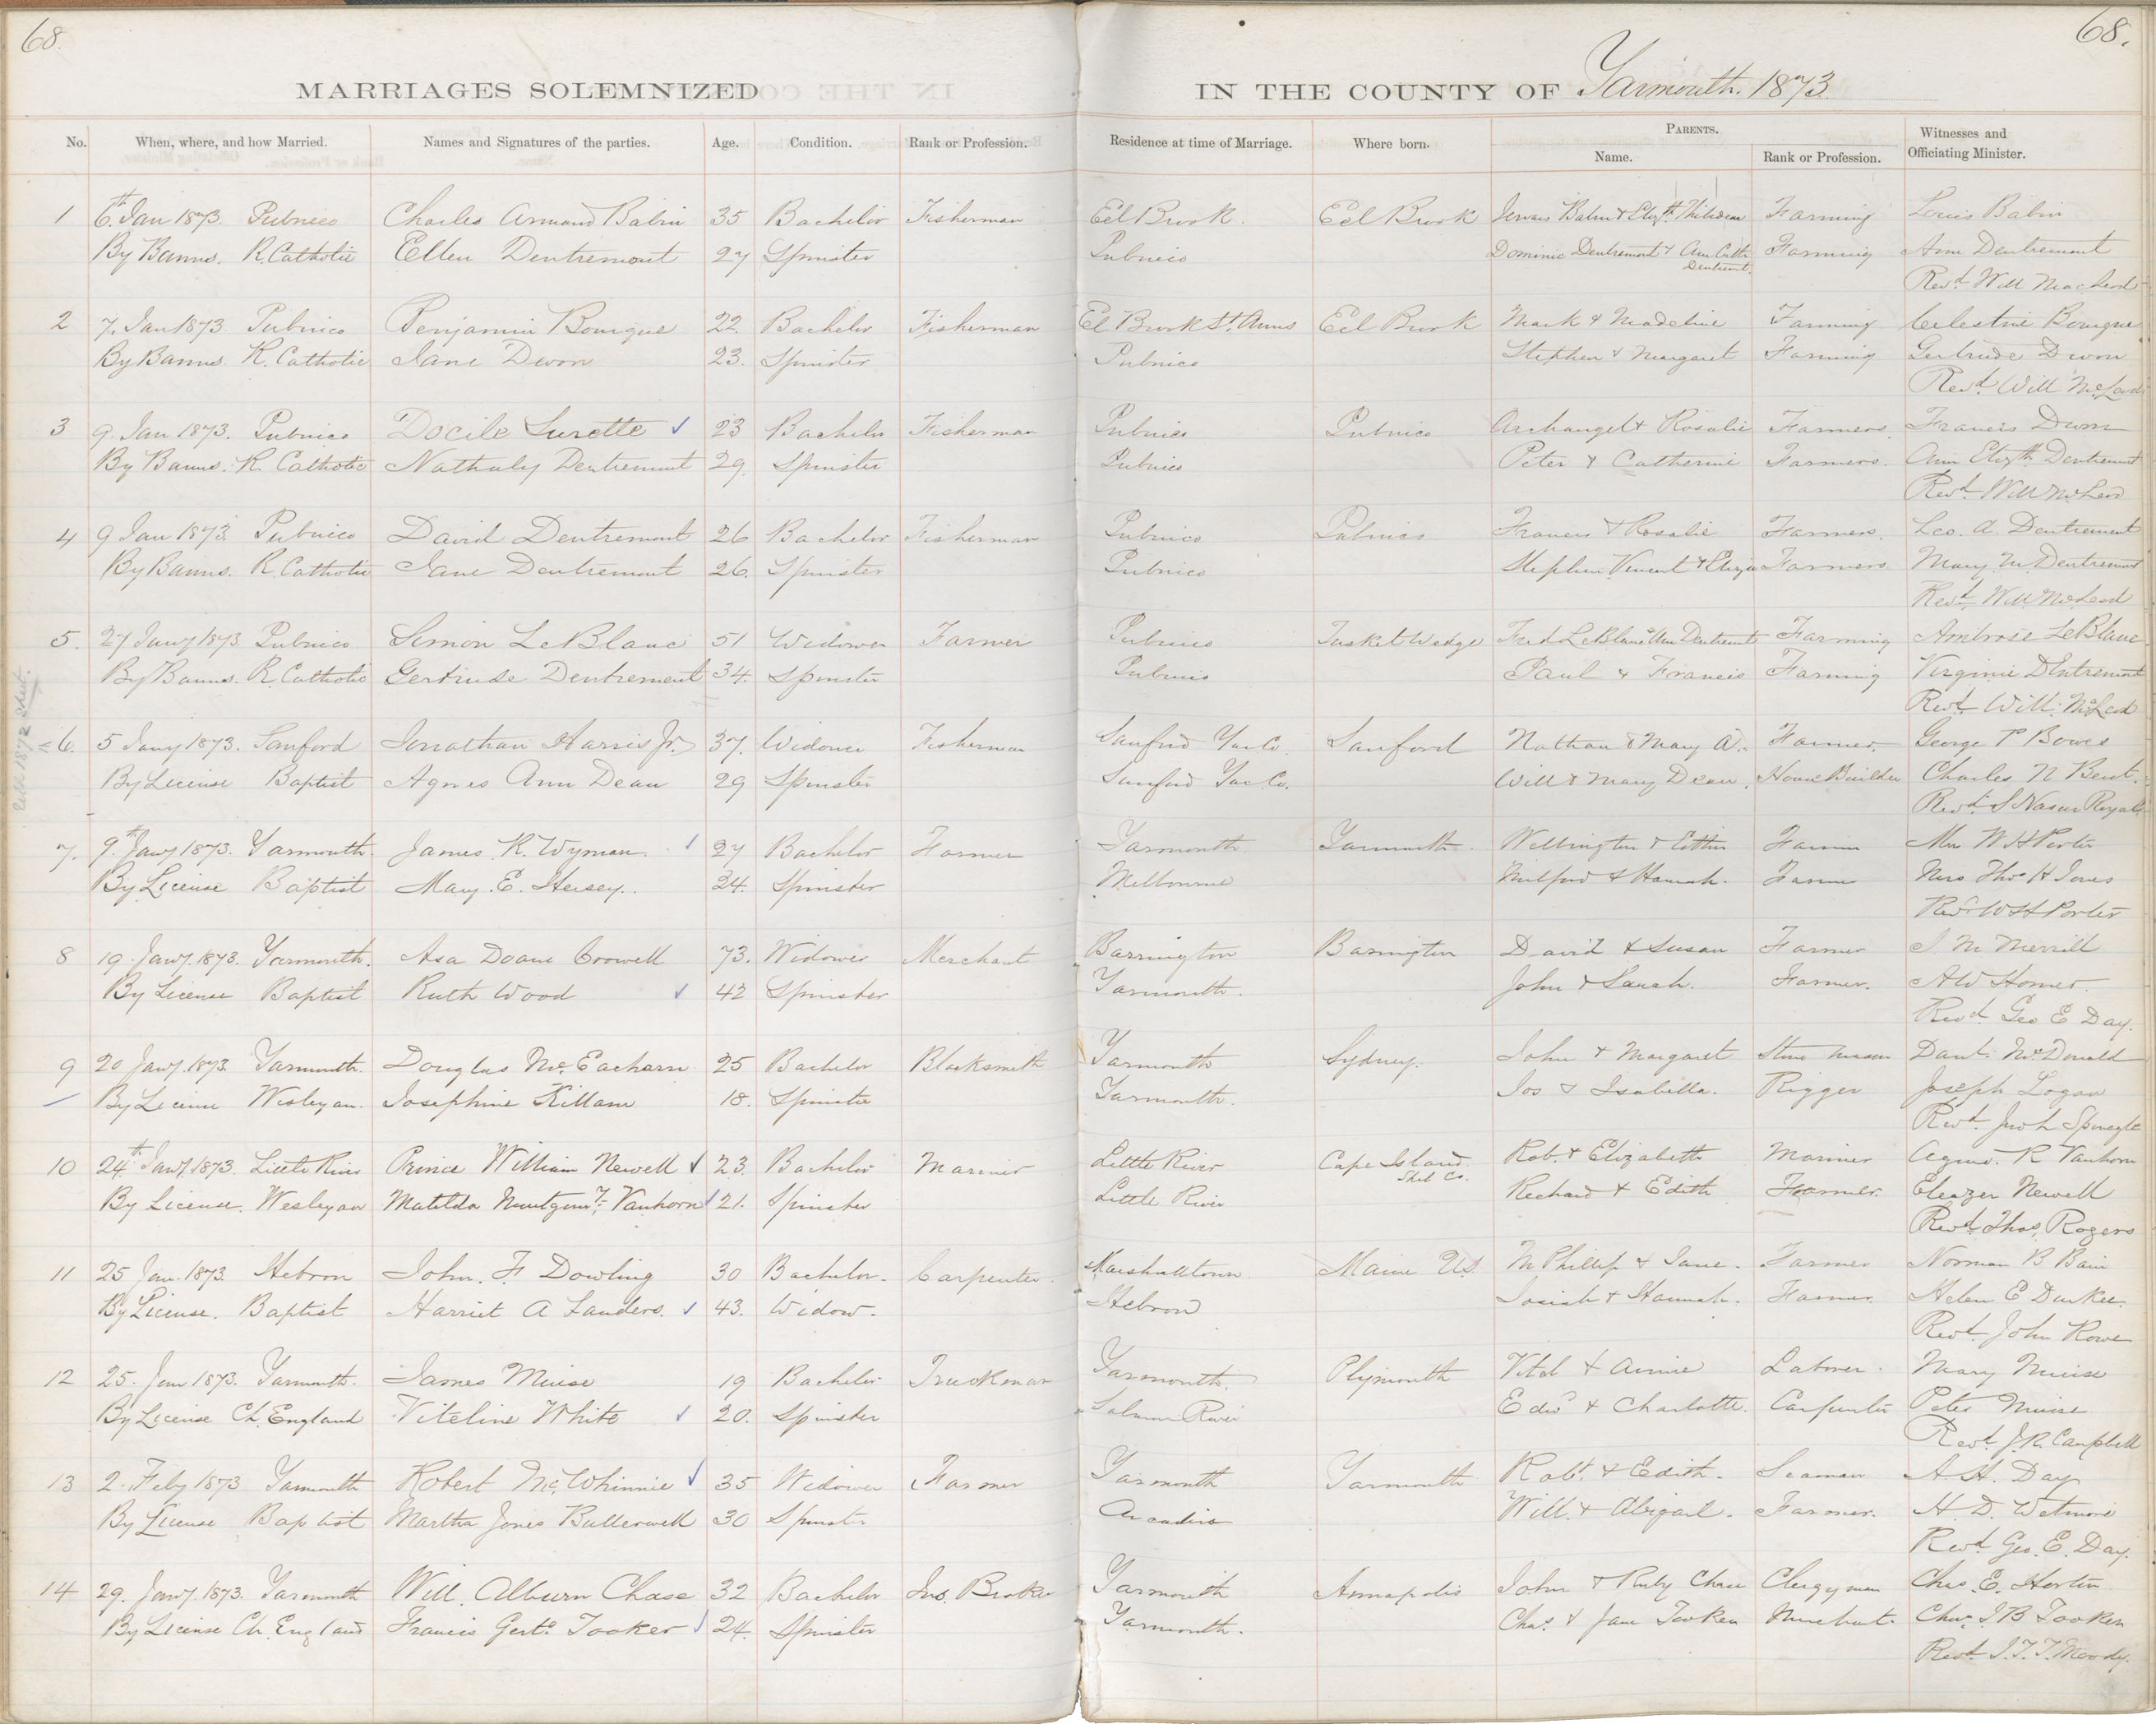 68. 68.
MARRIAGES SOLEMNIZED IN THE COUNTY OF Yarmouth. 1873
No. When, where, and how Married. Names and Signatures of the parties. Age. Condition. Rank or Profession. Residence at time of Marriage. Where born. PARENTS. Name. Rank or Profession. Witnesses and Officiating Minister.
1 6th Jan 1873. Pubnico Charles Armand Babin 35 Bachelor Fisherman Eel Brook. Eel Brook Babin & Elizth Thibideau Farming Louis Babin
By Banns. R. Catholic Ellen Dentremont 27 Spinster Pubnico Dominic Dentremont & Ann Cath Dentremont. Farming Ann Dentremont
Revd Will MacLeod
2 7. Jan 1873. Pubnico Benjamin Bourque 22. Bachelor Fisherman El Brook St. Anns Eel Brook Mark & Madeline Farming Celestine Bourque
By Banns. R. Catholic Jane Dwon 23. Spinster Pubnico Stephen & Margaret Farming Gertrude Dwon
Revd. Will McLeod
3 9. Jan 1873. Pubnico Docile Surette 23 Bachelor Fisherman Pubnico Pubnico Archangel & Rosalie Farmers. Francis Dwon
By Banns. R. Catholic Nathaly Dentremont 29. Spinster Pubnico Peter & Catherine Farmers. Ann Elizth Dentremont
Revd. Will McLeod
4 9 Jan 1873. Pubnico David Dentremont 26 Bachelor Fisherman Pubnico Pubnico Francis & Rosalie Farmers. Leo. A. Dentremont
By Banns. R. Catholic Jane Dentremont 26. Spinster Pubnico Stephen Vincent & Eliza Farmers Mary M. Dentremont
Revd. Will McLeod
5. 27 Jany 1873. Pubnico Simon LeBlanc 51 Widower Farmer Pubnico Tusket Wedge Fred LeBlanc & Ann Dentremont Farming Ambrose LeBlanc
By Banns. R. Catholic Gertrude Dentremont 34. Spinster Pubnico Paul & Francis Farming Virginie Dentremont
Revd. Will. McLeod
6. 5 Jany 1873. Sanford Jonathan Harris Jr. 37. Widower Fisherman Sanford Yar Co. Sanford Nathan & Mary A. Farmer. George P Bowes
By License Baptist Agnes Ann Dean 29 Spinster Sanford Yar. Co. Will & Mary Dean. House Builder Charles N Bent.
Revd. S Nason Royal
7. 9th Jany 1873. Yarmouth. James. R. Wyman. 27 Bachelor Farmer Yarmouth Yarmouth. Wellington & Farmer Mrs W H Porter
By License Baptist Mary. E. Hersey. 24. Spinster Melbourne Milford & Hannah. Farmer Mrs Thos H Jones
Revd W H Porter
8 19. Jany. 1873. Yarmouth. Asa Doane Crowell 73. Widower Merchant Barrington Barrington David & Susan Farmer J. M Merrill
By License Baptist Ruth Wood 42 Spinster Yarmouth. John & Sarah. Farmer. A W Homer.
Revd. Geo E Day.
9 20 Jany. 1873 Yarmouth. Douglas McEacharn 25 Bachelor Blacksmith Yarmouth Sydney. John & Margaret Stone mason Danl. McDonald
By License Wesleyan. Josephine Killam 18. Spinster Yarmouth. Jos & Isabella. Rigger Joseph Logan
Revd.
10 24th Jany. 1873. Little River Prince William Newell 23. Bachelor Mariner Little River Cape Island. Shel Co. Rob. & Elizabeth Mariner R Vanhorn
By License. Wesleyan Matilda Vanhorn 21. Spinster Little River Richard & Edith Farmer. Eleazer Newell
Revd. Thos. Rogers
11 25 Jan. 1873. Hebron John. F Dowling 30 Bachelor. Carpenter. Marshalltown Maine US. M Phillip & Jane. Farmer Norman B Bain
By License. Baptist Harriet A Landers. 43. Widow. Hebron Josiah & Hannah. Farmer. Helen E Durkee.
Revd. John Rowe
12 25. Jan 1873. Yarmouth. James Muise 19 Bachelor Truckman Yarmouth. Plymouth Vital & Annie Laborer. Mary Muise
By License Ch. England Viteline White 20. Spinster Salmon River Edwd & Charlotte. Carpenter Peter Muise
Revd. J. R. Campbell
13 2. Feby 1873 Yarmouth Robert McWhinnie 35 Widower Farmer Yarmouth Yarmouth Robt. & Edith. Seaman A. H. Day
By License Baptist Martha Jones Butterwell 30 Spinster Arcadia Will. & Abigail. Farmer. H. D. Wetmore
Revd. Geo. E. Day.
14 29. Jany. 1873. Yarmouth Will. Alburn Chase 32 Bachelor Ins. Broker Yarmouth Annapolis John & Ruby Chase Clergyman Chas. E. Horton
By License Ch. England Francis Gert. Tooker 24. Spinster Yarmouth. Chas. & Jane Tooker Merchant. J B Tooker
Revd. J. T. T. Moody.